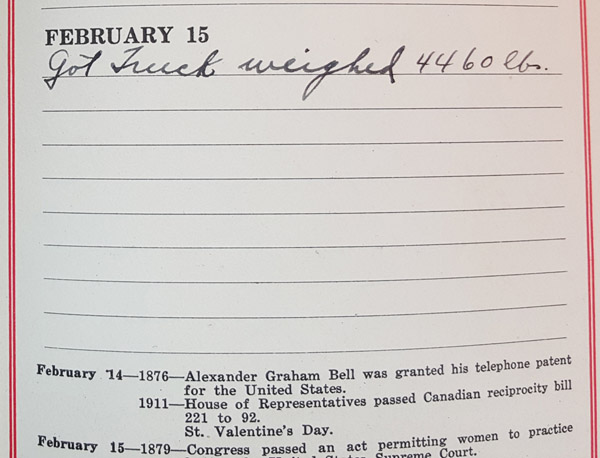 FEBRUARY 15
Got Truck weighed 4460 lbs.
February 14—1876—Alexander Graham Bell was granted his telephone patent
for the United States.
1911—House of Representatives passed Canadian reciprocity bill
221 to 92.
St. Valentine's Day.
February 15—1879—Congress passed an act permitting women to practice
United States Supreme Court.